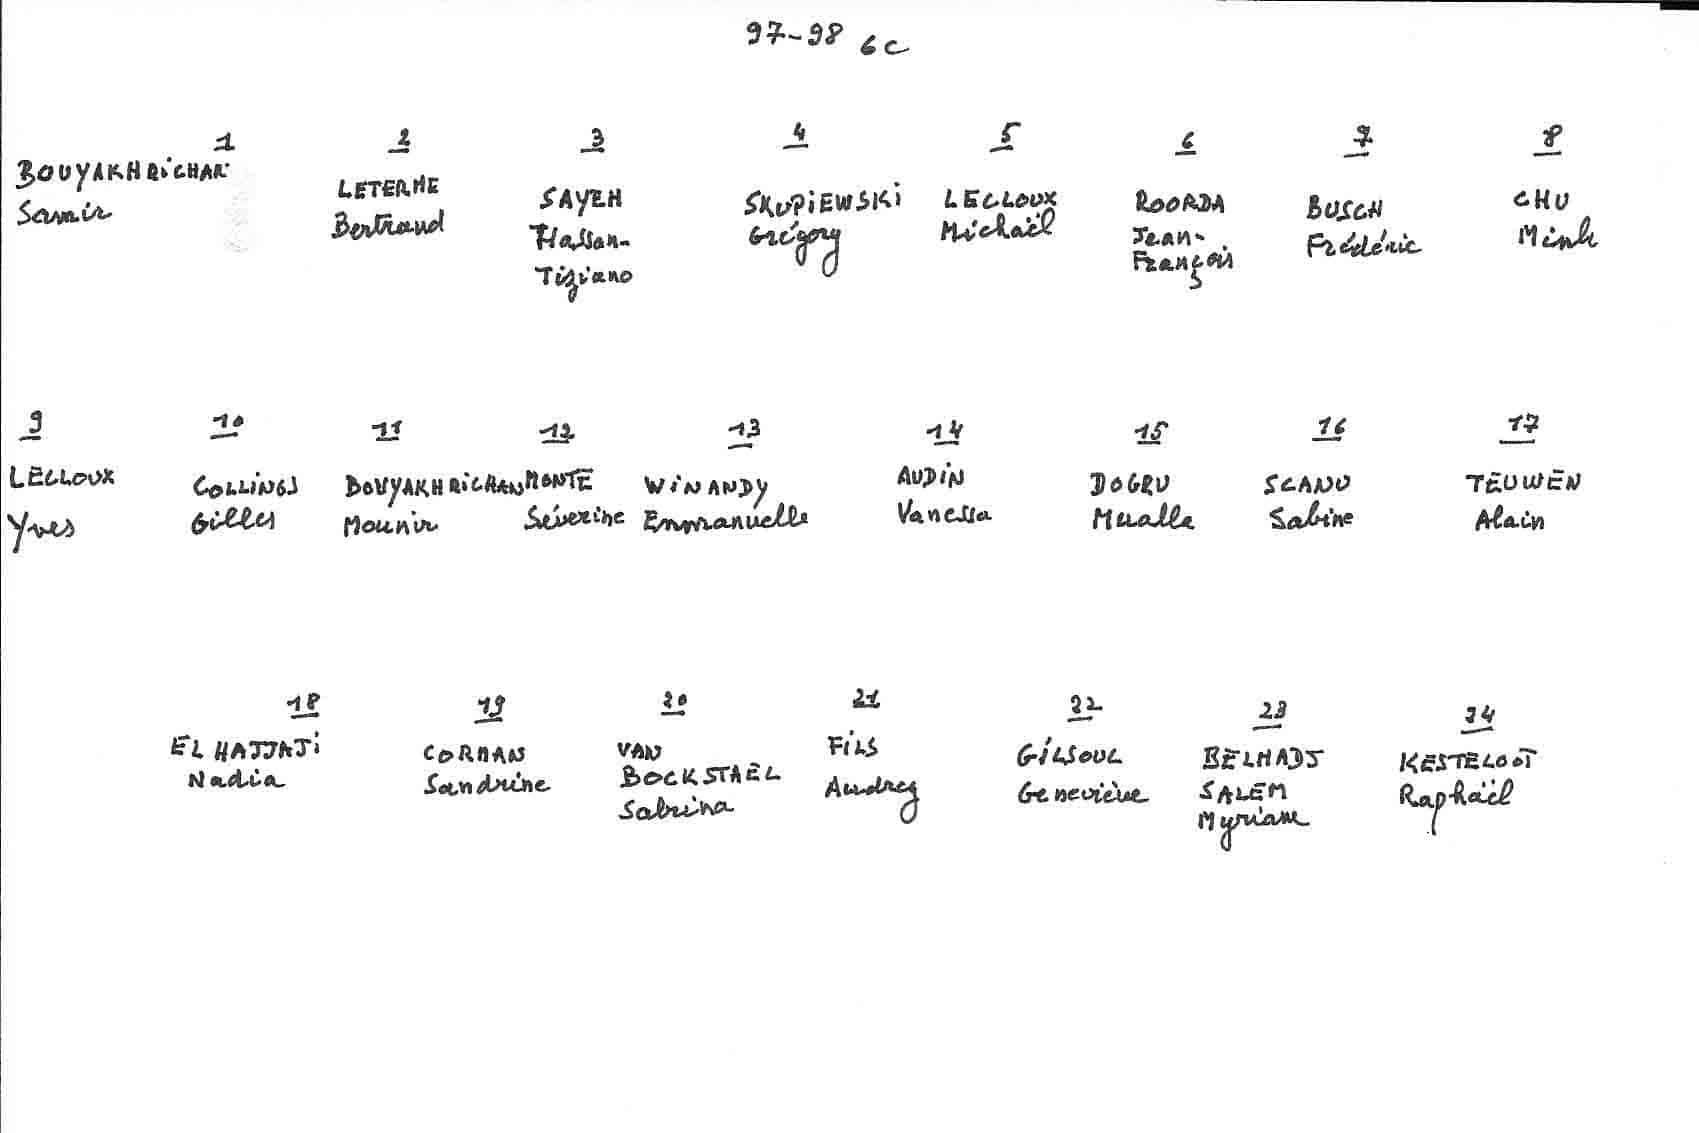 97-98 6c
1 2 3 4 5 6 7 8
BOUYAKHRICHAR LETERME SAYEH SKUPIEWSKI LECLOUX ROORDA BUSCH CHU
Samir Bertrand Hassan- Grégory Michaël Jean- Frédéric Minh
Tiziano François
9 10 11 12 13 14 15 16 17
LECLOUX COLLINGS BOUYAKHRICHAN MONTE WINANDY AUDIN DOGRU SCANU TEUWEN
Yves Gilles Mounir Séverine Emmanuelle Vanessa Mualla Sabine Alain
18 19 20 21 22 23 24
EL HAJJAJI CORMAN VAN FILS GILSOUL BELHADJ KESTELOOT
Nadia Sandrine BOCKSTAEL Audrey Geneviève SALEM Raphaël
Sabrina Myriam